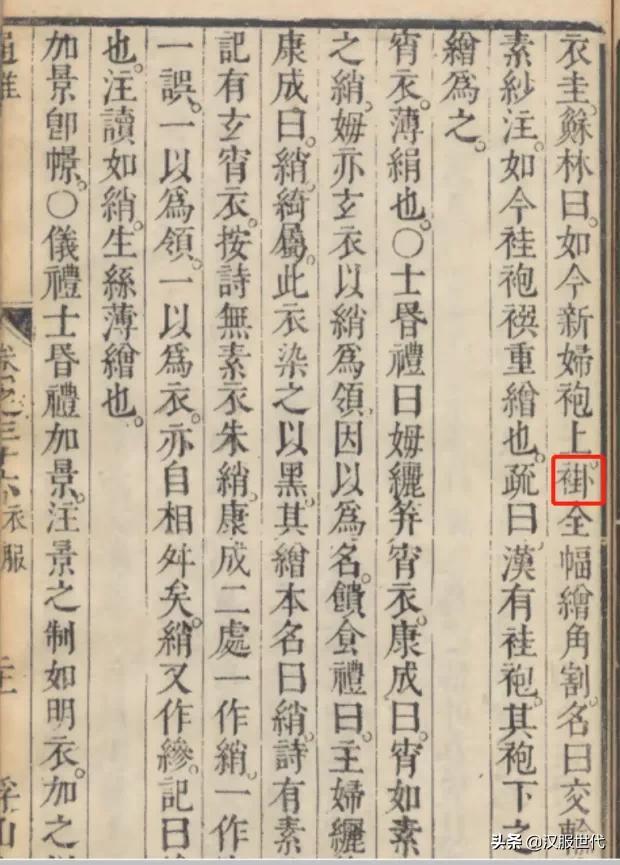 衣圭。蘇林曰。如今新婦袍上褂。全幅繒角割。名曰交輸
素紗注。如今袿袍襈重繒也。疏曰。漢有袿袍。其袍下之
繒爲之。
宵衣。薄絹也。○士昏禮曰姆纚笄宵衣。康成曰。宵如素
之綃。姆亦玄衣以綃爲領。因以爲名。饋食禮曰。主婦纚
康成曰。綃綺屬。此衣染之以黑。其繒本名曰綃。詩有素
記有玄宵衣。按詩無素衣朱綃。康成二處一作綃。一作
一誤。一以爲領。一以爲衣。亦自相舛矣。綃又作縿。記曰
也。注讀如綃。生絲薄繒也。
加景卽幜。○儀禮士昏禮加景。注景之制如明衣。加之
通雅
卷之三十六 衣服
浮山
头条 @汉服世代